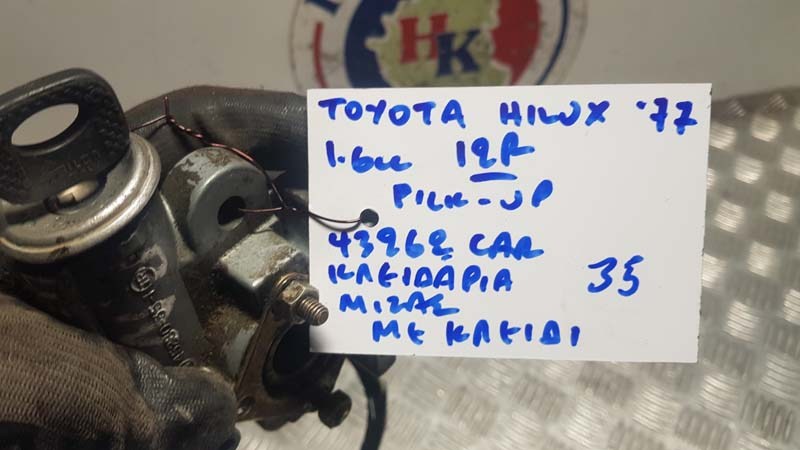 HK
TOYOTA HILUX '77
1.6cc 12R
PICK-UP
43962 CAR
ΚΛΕΙΔΑΡΙΑ 35
ΜΙΖΑΣ
ΜΕ ΚΛΕΙΔΙ